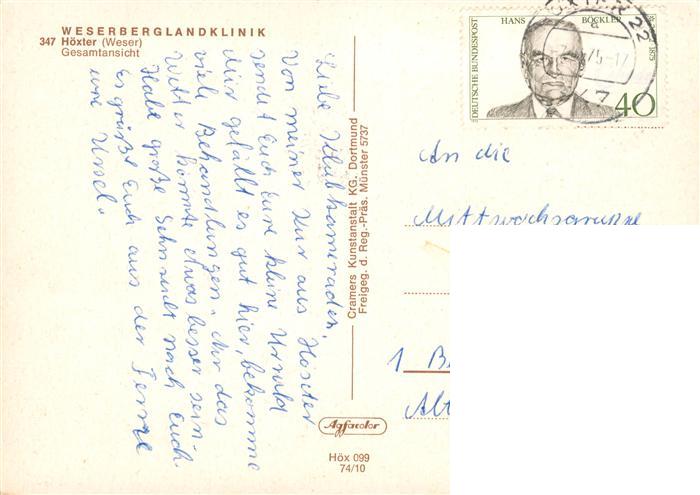 WESERBERGLANDKLINIK
347 Höxter (Weser)
Gesamtansicht
Liebe Klubkameraden,
Von meiner Kur aus Höxter
sendet Euch Eure kleine
Mir gefällt es gut hier, bekomme
viele Behandlungen. Nur das
Wetter könnte etwas besser sein.
Habe große Sehnsucht nach Euch.
Es grüßt Euch aus der Ferne
eure Ursel.
Cramers Kunstanstalt KG, Dortmund
Freigeg. d. Reg.-Präs. Münster 5737
Agfacolor
Höx 099
74/10
DEUTSCHE BUNDESPOST
HANS BÖCKLER
1875
40
22
75-17
An die
Mittwochsgruppe
1 B
Alt